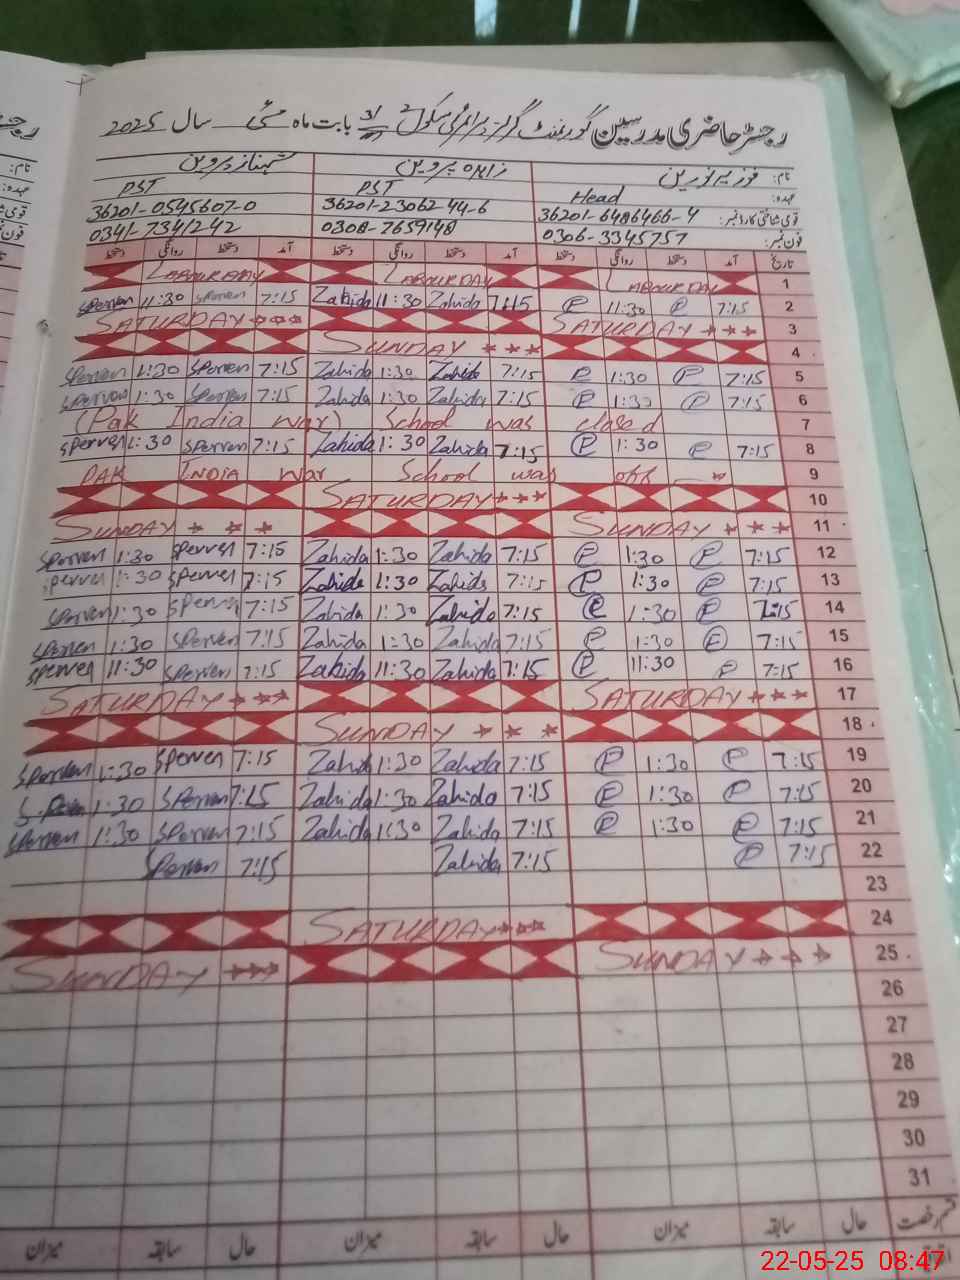 رجسٹر حاضری مدرسین گورنمنٹ گرلز پرائمری سکول بابت ماہ مئی سال 2025
نام: فوزیہ نورین زاہدہ پروین شہناز پروین
عہدہ: Head PST PST
قومی شناختی کارڈ نمبر: 36201-6486466-4 36201-23062-44-6 36201-0545607-0
فون نمبر: 0306-3345757 0308-7659148 0341-7341242
تاریخ آمد دستخط روانگی دستخط آمد دستخط روانگی دستخط آمد دستخط روانگی دستخط
LABOUR DAY LABOUR DAY LABOUR DAY 1
sperven 11:30 sperven 7:15 Zahida 11:30 Zahida 7:15 P 11:30 P 7:15 2
SATURDAY *** SATURDAY *** 3
SUNDAY *** 4
sperven 1:30 sperven 7:15 Zahida 1:30 Zahida 7:15 P 1:30 P 7:15 5
sperven 1:30 sperven 7:15 Zahida 1:30 Zahida 7:15 P 1:30 P 7:15 6
(Pak India war) School was closed 7
sperven 1:30 sperven 7:15 Zahida 1:30 Zahida 7:15 P 1:30 P 7:15 8
PAK INDIA war School was off * 9
SATURDAY *** 10
SUNDAY *** SUNDAY *** 11
sperven 1:30 sperven 7:15 Zahida 1:30 Zahida 7:15 P 1:30 P 7:15 12
sperven 1:30 sperven 7:15 Zahida 1:30 Zahida 7:15 P 1:30 P 7:15 13
sperven 1:30 sperven 7:15 Zahida 1:30 Zahida 7:15 P 1:30 P 7:15 14
sperven 1:30 sperven 7:15 Zahida 1:30 Zahida 7:15 P 1:30 P 7:15 15
sperven 11:30 sperven 7:15 Zahida 11:30 Zahida 7:15 P 11:30 P 7:15 16
SATURDAY *** SATURDAY *** 17
SUNDAY *** 18
sperven 1:30 sperven 7:15 Zahida 1:30 Zahida 7:15 P 1:30 P 7:15 19
sperven 1:30 sperven 7:15 Zahida 1:30 Zahida 7:15 P 1:30 P 7:15 20
sperven 1:30 sperven 7:15 Zahida 1:30 Zahida 7:15 P 1:30 P 7:15 21
sperven 7:15 Zahida 7:15 P 7:15 22
23
SATURDAY *** 24
SUNDAY *** SUNDAY *** 25
26
27
28
29
30
31
قسم رخصت حال سابقہ میزان حال سابقہ میزان حال سابقہ میزان
22-05-25 08:47